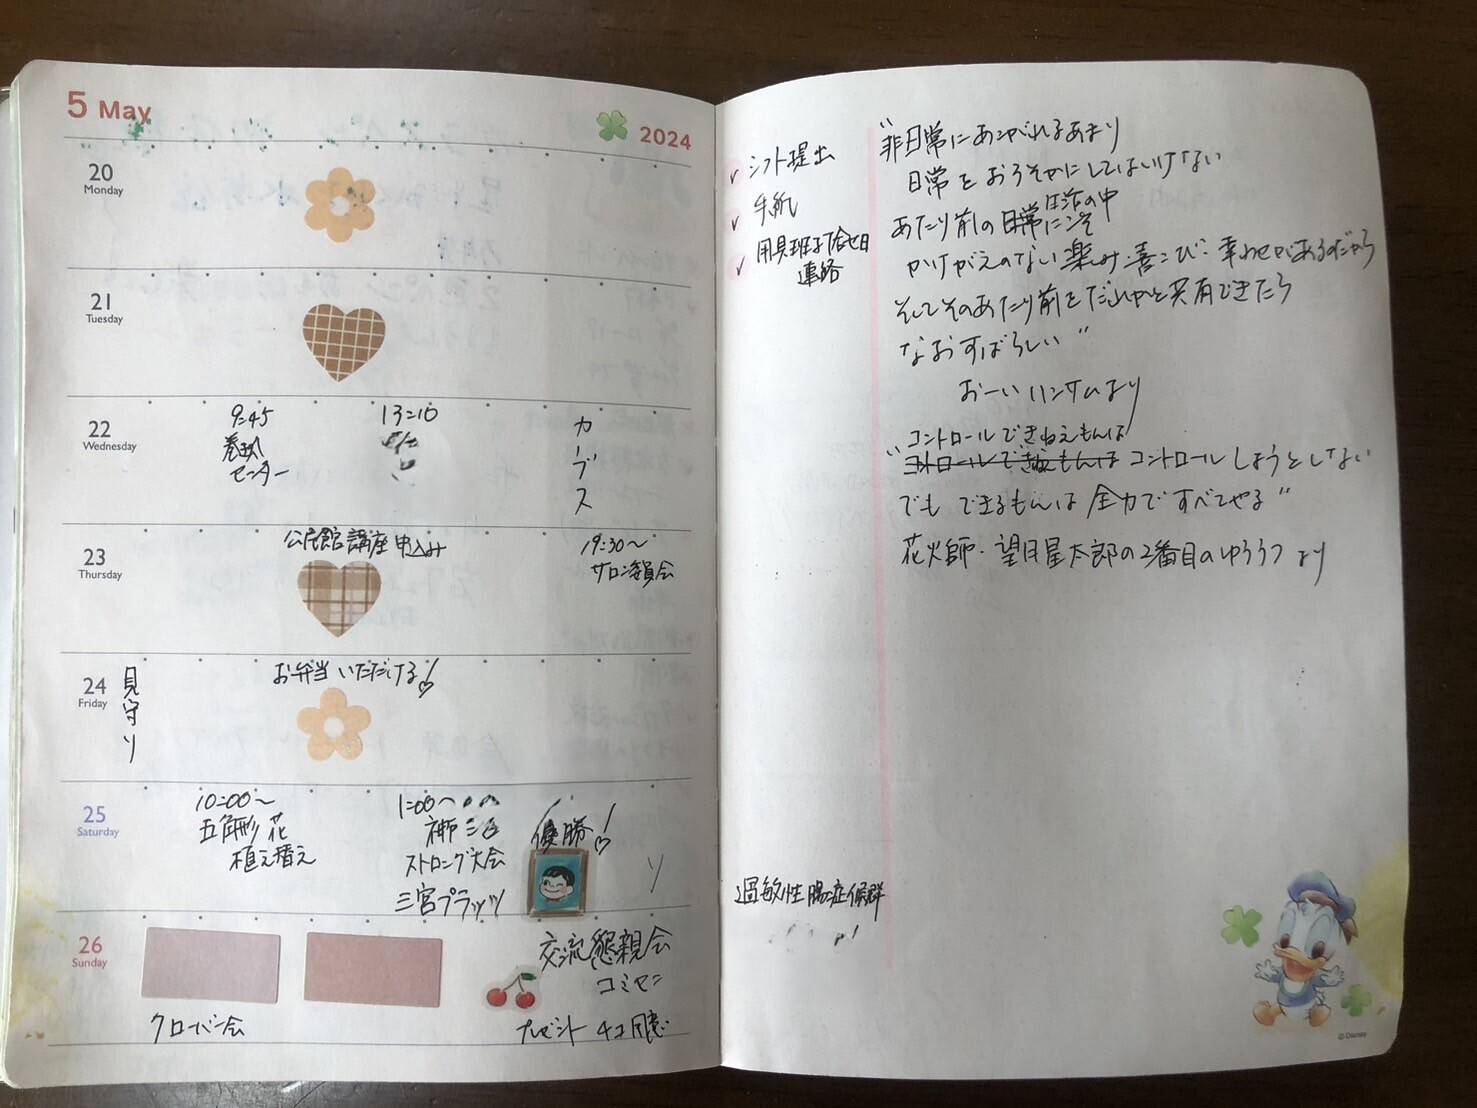 5 May
2024
20
Monday
21
Tuesday
22
Wednesday
9:45
センター
13:10
カーブス
23
Thursday
公民館講座申込み
19:30～
サロン委員会
24
Friday
見守り
お弁当いただける！
25
Saturday
10:00～
五角形花
植え替え
1:00～
ストロング大会
三宮プラッツ
優勝！
り
26
Sunday
クローバー会
交流懇親会
コミセン
プレゼント チョコ用意
シフト提出
手紙
用具班打合せ日
連絡
過敏性腸症候群
"非日常にあこがれるあまり
日常をおろそかにしてはいけない
あたり前の日常生活の中
にこそ
かけがえのない楽しみ・喜こび・幸わせがあるのだから
そしてそのあたり前をだれかと共有できたら
なおすばらしい"
おーいハンサムより
コントロールできねえもんは
"コントロールできねえもんはコントロールしようとしない
でも できるもんは全力ですべてやる"
花火師・望月星太郎の2番目のゆううつより
© Disney